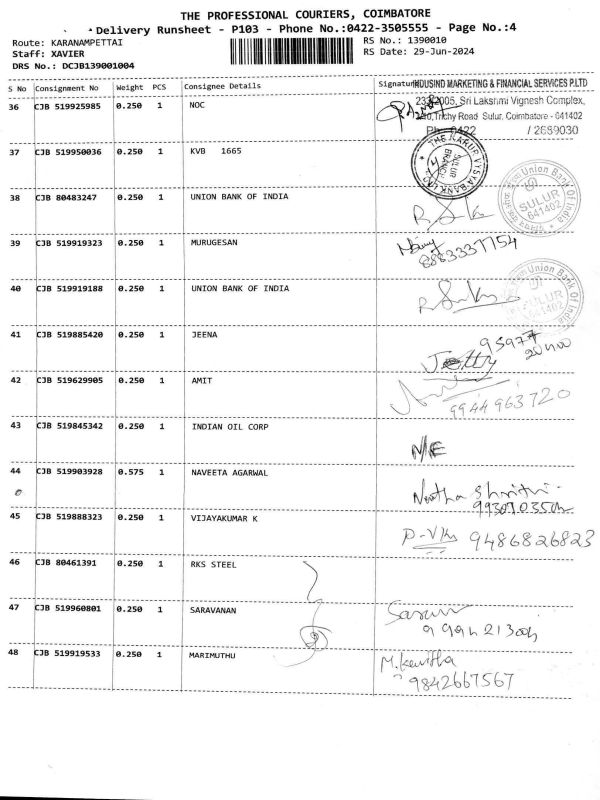 THE PROFESSIONAL COURIERS, COIMBATORE
Delivery Runsheet - P103 - Phone No.:0422-3505555 - Page No.:4
Route: KARANAMPETTAI RS No.: 1390010
Staff: XAVIER RS Date: 29-Jun-2024
DRS No.: DCJB139001004
S No Consignment No Weight PCS Consignee Details Signature
INDUSIND MARKETING & FINANCIAL SERVICES P.LTD
36 CJB 519925985 0.250 1 NOC
2005, Sri Lakshmi Vignesh Complex,
Trichy Road Sulur, Coimbatore - 641402
Ph : 0422 / 2689030
37 CJB 519950036 0.250 1 KVB 1665
THE KARUR VYSYA BANK LTD
SULUR
BRANCH
38 CJB 80483247 0.250 1 UNION BANK OF INDIA
Union Bank Of India
SULUR
641402
39 CJB 519919323 0.250 1 MURUGESAN
8883337754
40 CJB 519919188 0.250 1 UNION BANK OF INDIA
Union Bank Of India
SULUR
641402
41 CJB 519885420 0.250 1 JEENA
95977
20400
42 CJB 519629905 0.250 1 AMIT
9944963720
43 CJB 519845342 0.250 1 INDIAN OIL CORP
N/E
44 CJB 519903928 0.575 1 NAVEETA AGARWAL
45 CJB 519888323 0.250 1 VIJAYAKUMAR K
9486826823
46 CJB 80461391 0.250 1 RKS STEEL
47 CJB 519960801 0.250 1 SARAVANAN
48 CJB 519919533 0.250 1 MARIMUTHU
M.Kavitha
9842667567